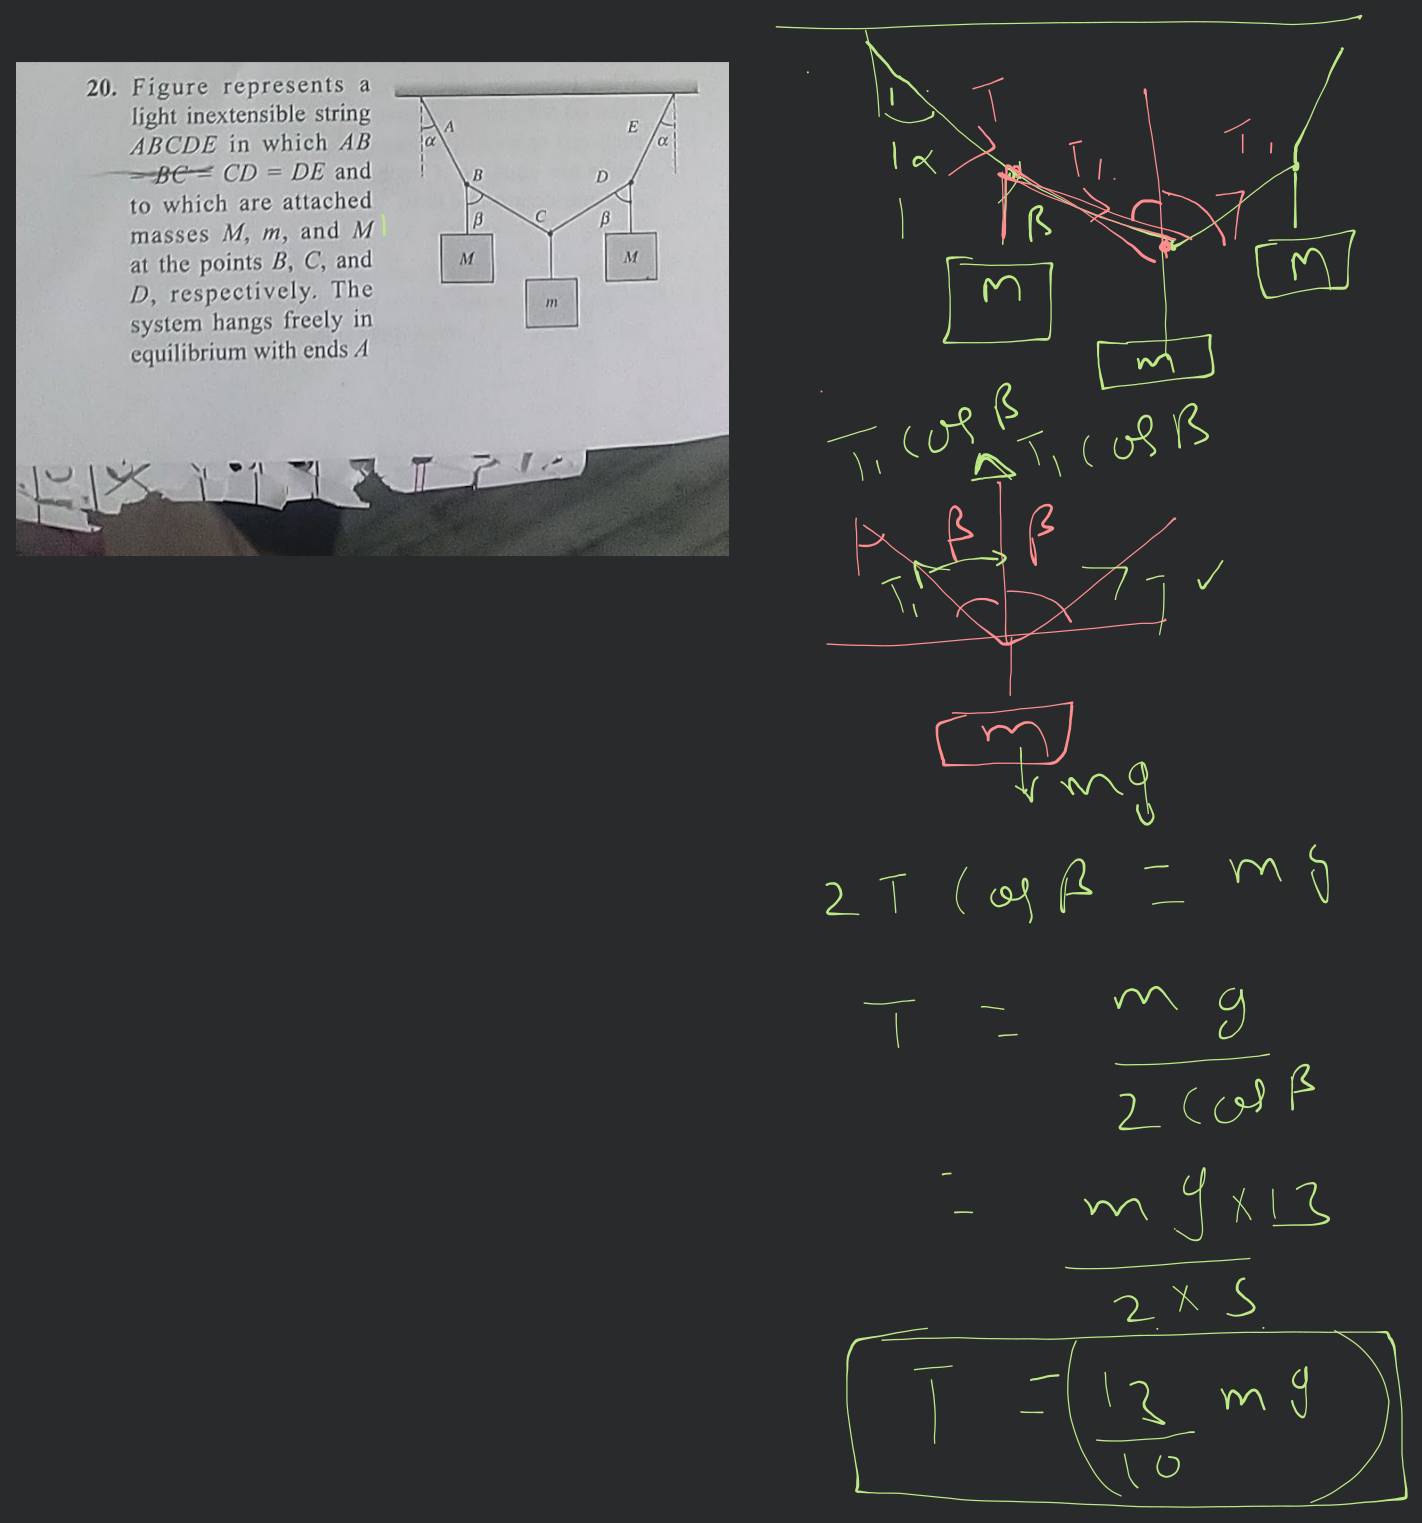 20. Figure represents a
light inextensible string
ABCDE in which AB
= BC = CD = DE and
to which are attached
masses M, m, and M
at the points B, C, and
D, respectively. The
system hangs freely in
equilibrium with ends A
A
E
α
α
B
D
C
β
β
M
M
m
T
T₁
T₁
α
β
M
M
m
T₁ cos β
T₁ cos β
β
β
T₁
T ✓
m
mg
2T cos β = mg
T = mg
2 cos β
= mg × 13
2 × 5
T = 13 mg
10